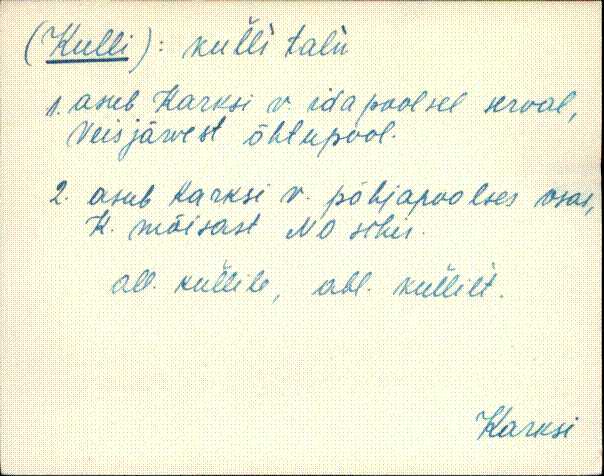 (Kulli): kull̀i talu
1. asub Karksi v. idapoolsel serval,
Veisjärvest õhtupool.
2. asub Karksi v. põhjapoolses osas,
K. mõisast NO sihis.
all. kullile, abl. kullilt.
Karksi